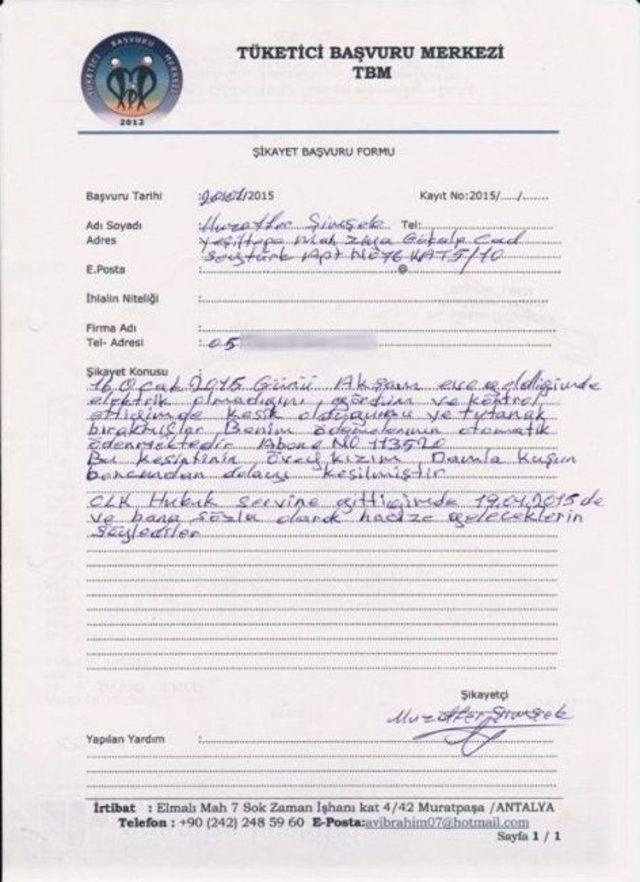 TÜKETİCİ BAŞVURU MERKEZİ
2012
TÜKETİCİ BAŞVURU MERKEZİ
TBM
ŞİKAYET BAŞVURU FORMU
Başvuru Tarihi :20.01/2015 Kayıt No:2015/..../.......
Adı Soyadı :Muzaffer Şimşek Tel:
Adres Yeşiltepe Mah Ziya Gökalp Cad
Soytürk Apt No 76 KAT 5/10
E.Posta : @
İhlalin Niteliği :
Firma Adı :
Tel- Adresi :05
Şikayet Konusu
16 Ocak 2015 Günü Akşam eve geldiğimde
elektrik olmadığını gördüm ve kontrol
ettiğimde kesik olduğunu ve tutanak
bıraktılar Benim ödemelerim otomatik
ödenmektedir Abone NO 113520
Bu kesintinin üvey kızım Damla Kuşun
borcundan dolayı kesilmiştir
CLK Hukuk servine gittiğimde 19.01.2015 de
ve bana sözlü olarak hacize geleceklerin
söylediler
Şikayetçi
Muzaffer Şimşek
Yapılan Yardım :
İrtibat : Elmalı Mah 7 Sok Zaman İşhanı kat 4/42 Muratpaşa /ANTALYA
Telefon : +90 (242) 248 59 60 E-Posta:avibrahim07@hotmail.com
Sayfa 1 / 1